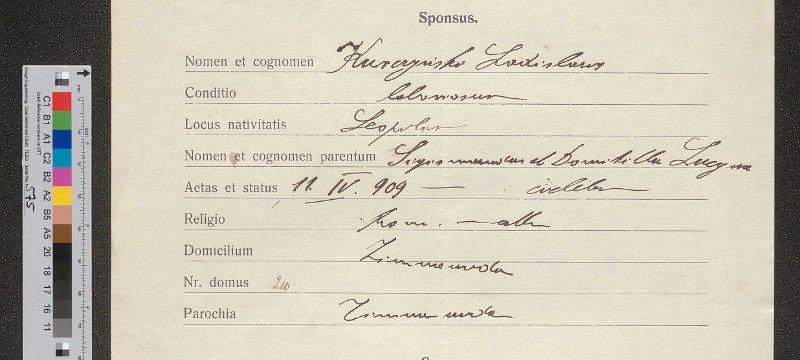 Sponsus.
Nomen et cognomen Kurczyński Ladislaus
Conditio laboriosus
Locus nativitatis Leopolis
Nomen et cognomen parentum Sigismundus et Domitilla
Aetas et status 11. IV. 909 —
Religio Rom. —
Domicilium Zimnawoda
Nr. domus
Parochia Zimnawoda
C1 B1 A1 C2 B2 A2 B5 A5 20 18 17 16 11
575